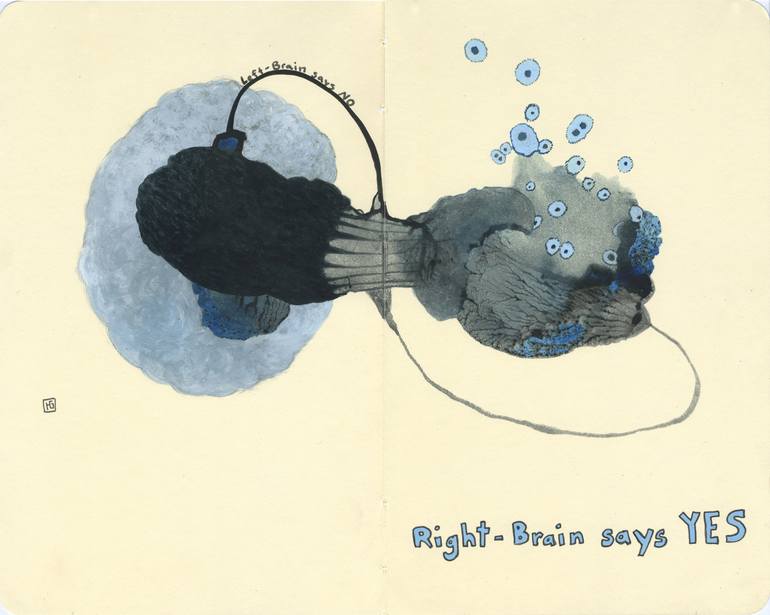 Left-Brain says NO
HG
Right-Brain says YES